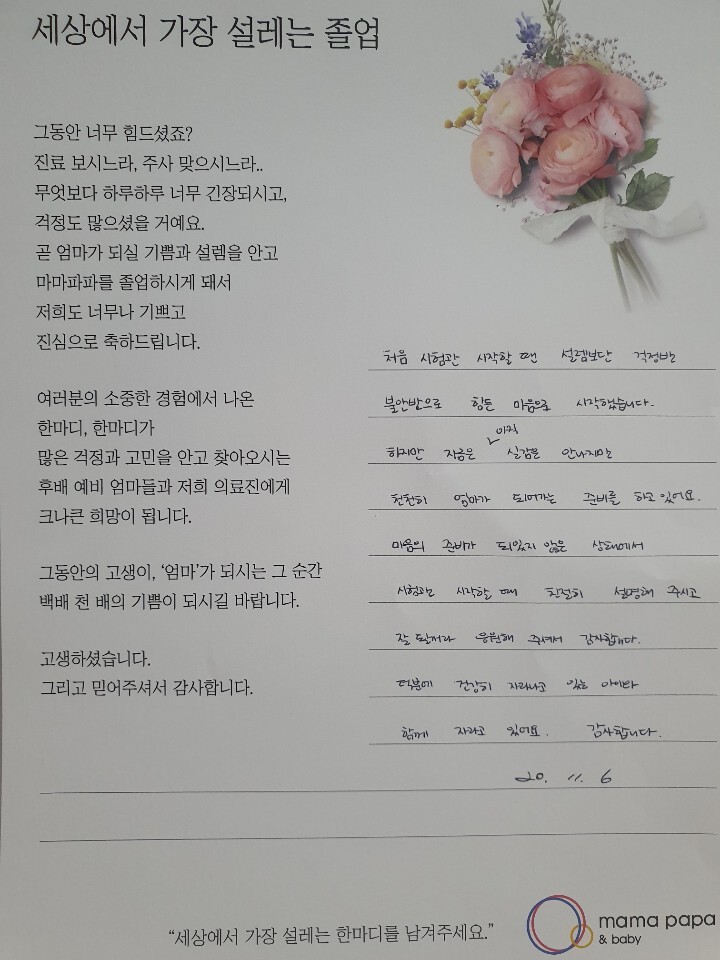 세상에서 가장 설레는 졸업
그동안 너무 힘드셨죠?
진료 보시느라, 주사 맞으시느라..
무엇보다 하루하루 너무 긴장되시고,
걱정도 많으셨을 거예요.
곧 엄마가 되실 기쁨과 설렘을 안고
마마파파를 졸업하시게 돼서
저희도 너무나 기쁘고
진심으로 축하드립니다.
여러분의 소중한 경험에서 나온
한마디, 한마디가
많은 걱정과 고민을 안고 찾아오시는
후배 예비 엄마들과 저희 의료진에게
크나큰 희망이 됩니다.
그동안의 고생이, '엄마'가 되시는 그 순간
백배 천 배의 기쁨이 되시길 바랍니다.
고생하셨습니다.
그리고 믿어주셔서 감사합니다.
처음 시험관 시작할 땐 설렘보단 걱정반
불안반으로 힘든 마음으로 시작했습니다.
하지만 지금은 아직 실감은 안나지만
천천히 엄마가 되어가는 준비를 하고 있어요.
마음의 준비가 되있지 않은 상태에서
시험관 시작할 때 친절히 설명해 주시고
잘 될꺼라 응원해 주셔서 감사합니다.
덕분에 건강히 자라나고 있는 아이와
함께 자라고 있어요. 감사합니다.
20. 11. 6
"세상에서 가장 설레는 한마디를 남겨주세요."
mama papa
& baby